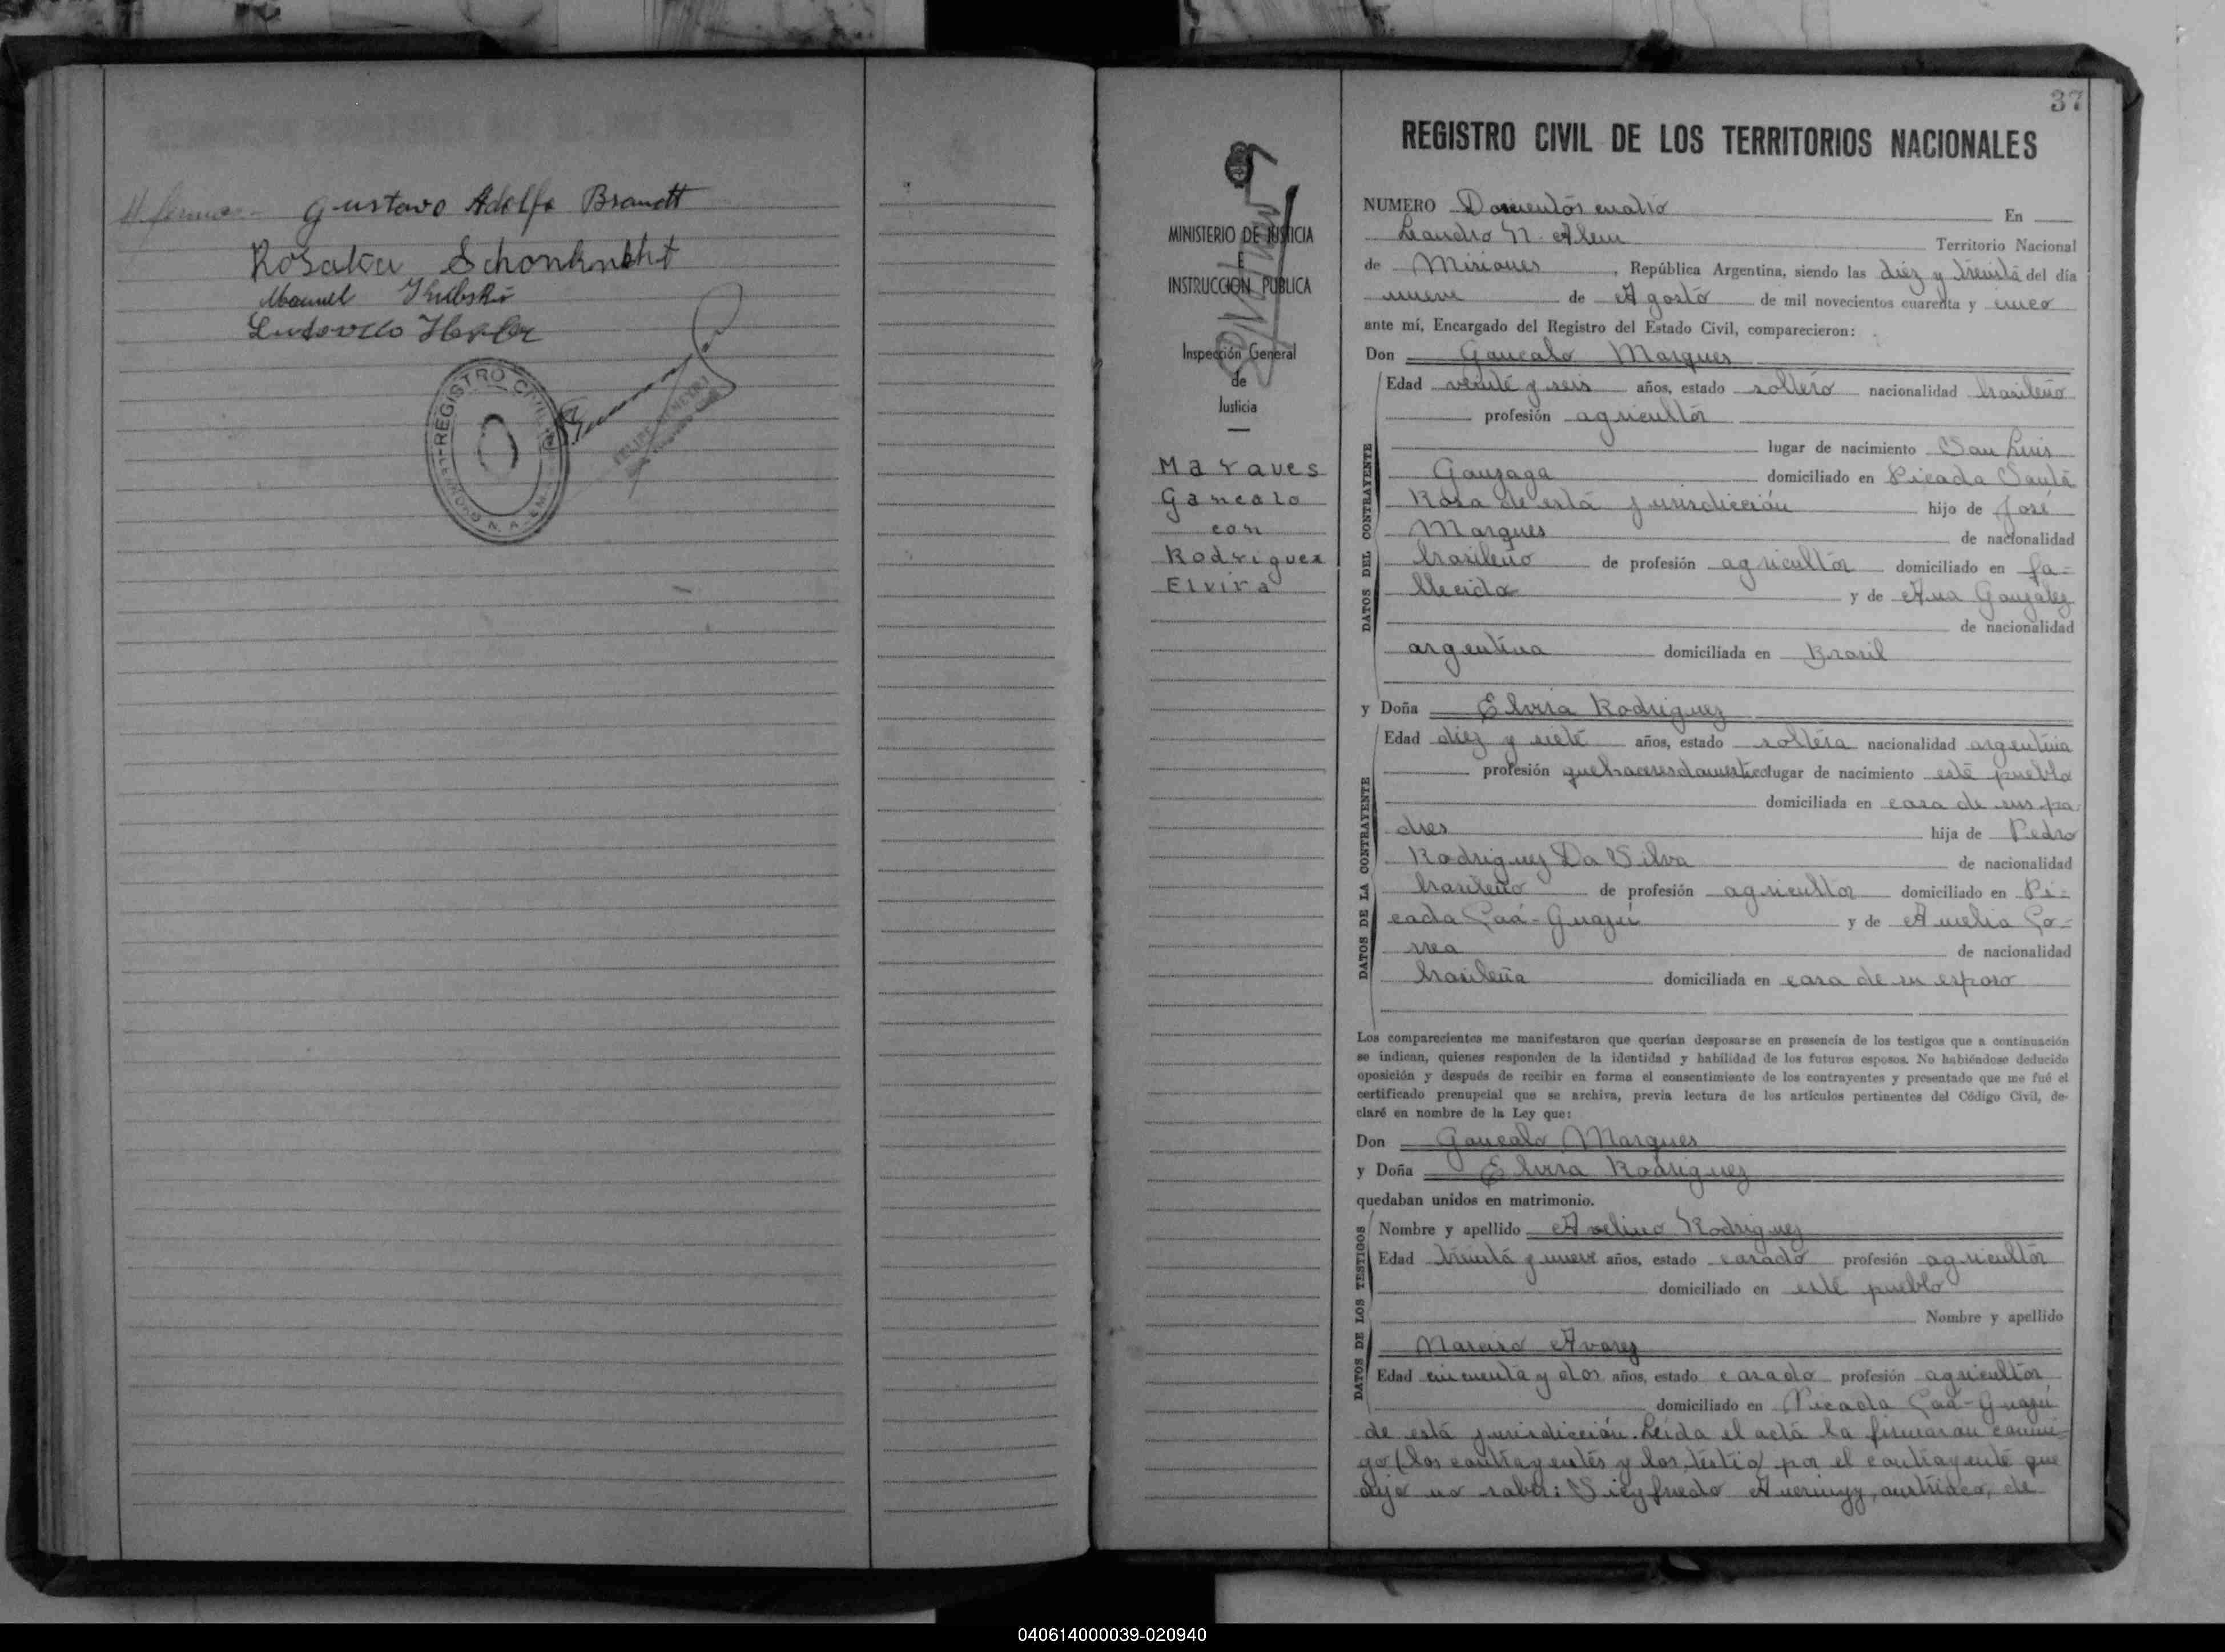 Gustavo Adolfo Brandt
Rosalia Schonknecht
Manuel
Ludovico
REGISTRO CIVIL
N. ALEM
37
REGISTRO CIVIL DE LOS TERRITORIOS NACIONALES
MINISTERIO DE JUSTICIA
E
INSTRUCCION PUBLICA
Inspección General
de
Justicia
Marques
Gancalo
con
Rodriguez
Elvira
NUMERO Doscientos cuatro En
Leandro N. Alem Territorio Nacional
de Misiones, República Argentina, siendo las diez y treinta del día
nueve de Agosto de mil novecientos cuarenta y cinco
ante mí, Encargado del Registro del Estado Civil, comparecieron:
Don Gancalo Marques
Edad veinte y seis años, estado soltero nacionalidad brasileño
profesión agricultor
lugar de nacimiento San Luis
Gonzaga domiciliado en Picada Santa
Rosa de esta jurisdicción hijo de José
Marques de nacionalidad
brasileño de profesión agricultor domiciliado en fa=
llecido y de Ana González
de nacionalidad
argentina domiciliada en Brasil
y Doña Elvira Rodriguez
Edad diez y siete años, estado soltera nacionalidad argentina
profesión quehaceres domestico lugar de nacimiento este pueblo
domiciliada en casa de sus pa
dres hija de Pedro
Rodriguez Da Silva de nacionalidad
brasileño de profesión agricultor domiciliado en Pi=
cada Caá-Guazú y de Amelia Co=
rrea de nacionalidad
brasileña domiciliada en casa de su esposo
Los comparecientes me manifestaron que querían desposarse en presencia de los testigos que a continuación
se indican, quienes responden de la identidad y habilidad de los futuros esposos. No habiéndose deducido
oposición y después de recibir en forma el consentimiento de los contrayentes y presentado que me fué el
certificado prenupcial que se archiva, previa lectura de los artículos pertinentes del Código Civil, de-
claré en nombre de la Ley que:
Don Gancalo Marques
y Doña Elvira Rodriguez
quedaban unidos en matrimonio.
Nombre y apellido Avelino Rodriguez
Edad treinta y nueve años, estado casado profesión agricultor
domiciliado en este pueblo
Nombre y apellido
Narciso Alvarez
Edad cincuenta y dos años, estado casado profesión agricultor
domiciliado en Picada Caá-Guazú
de esta jurisdicción. Leída el acta la firmaron conmi=
go (los contrayentes y los testio) por el contrayente que
dijo no saber: Sieyfredo austriaco, de
DATOS DEL CONTRAYENTE
DATOS DE LA CONTRAYENTE
DATOS DE LOS TESTIGOS
040614000039-020940